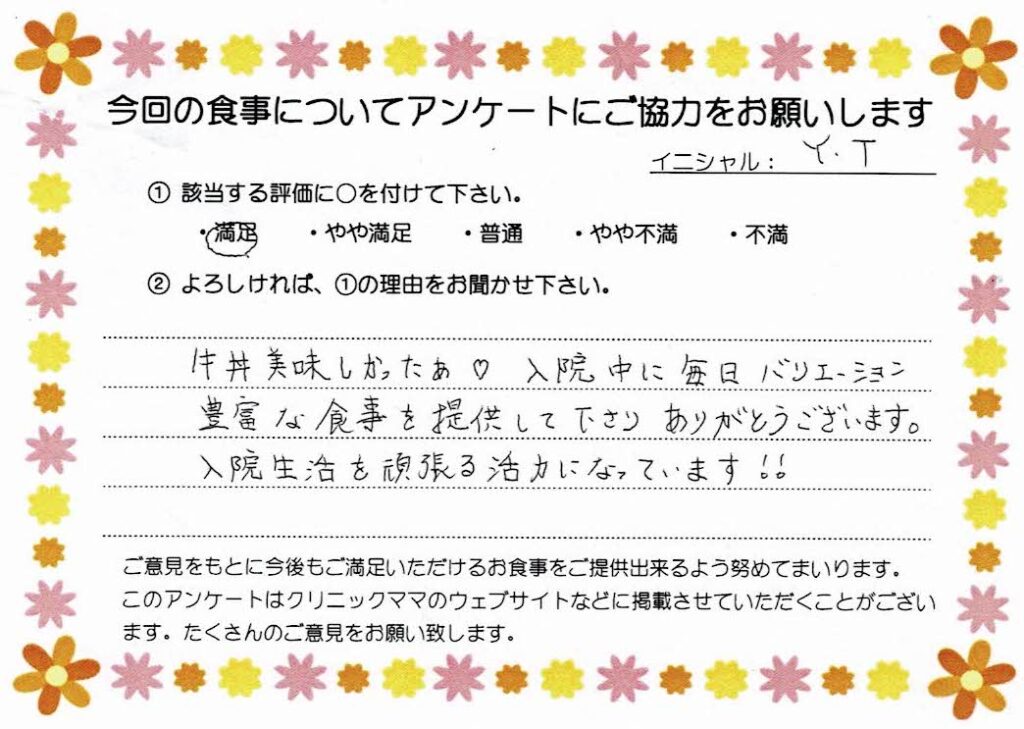 今回の食事についてアンケートにご協力をお願いします
イニシャル： Y.T
① 該当する評価に○を付けて下さい。
・満足 ・やや満足 ・普通 ・やや不満 ・不満
② よろしければ、①の理由をお聞かせ下さい。
牛丼美味しかったぁ♡ 入院中に毎日バリエーション
豊富な食事を提供して下さり ありがとうございます。
入院生活を頑張る活力になっています!!
ご意見をもとに今後もご満足いただけるお食事をご提供出来るよう努めてまいります。
このアンケートはクリニックママのウェブサイトなどに掲載させていただくことがござい
ます。たくさんのご意見をお願い致します。